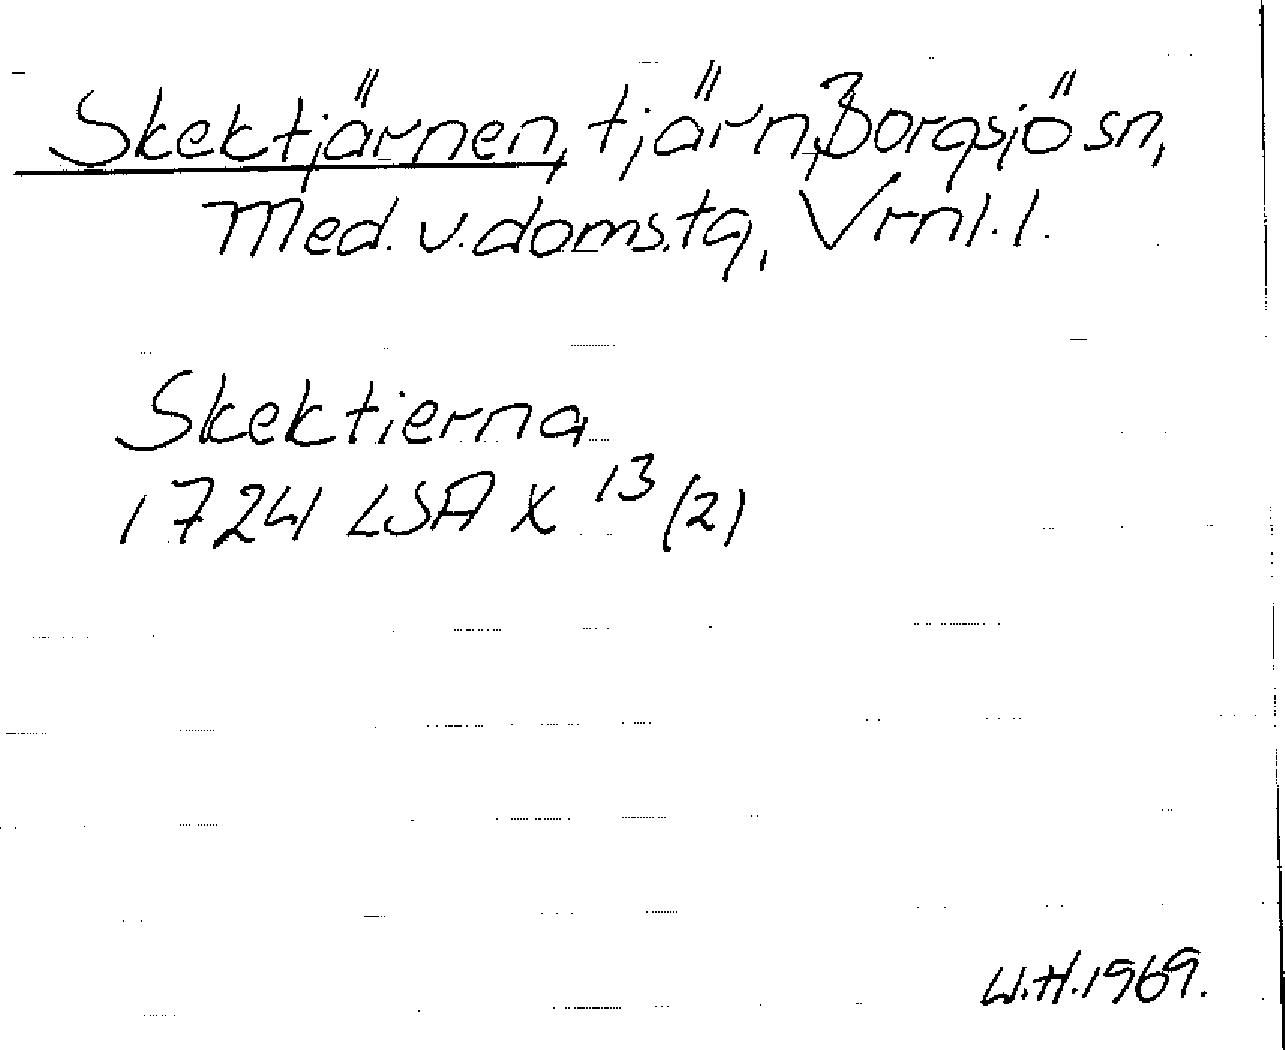 Skektjärnen, tjärn, Borgsjö sn,
Med. v. doms.tg, Vrnl.l.
Skektierna
1724 LSA X 13 (2)
W.H.1969.